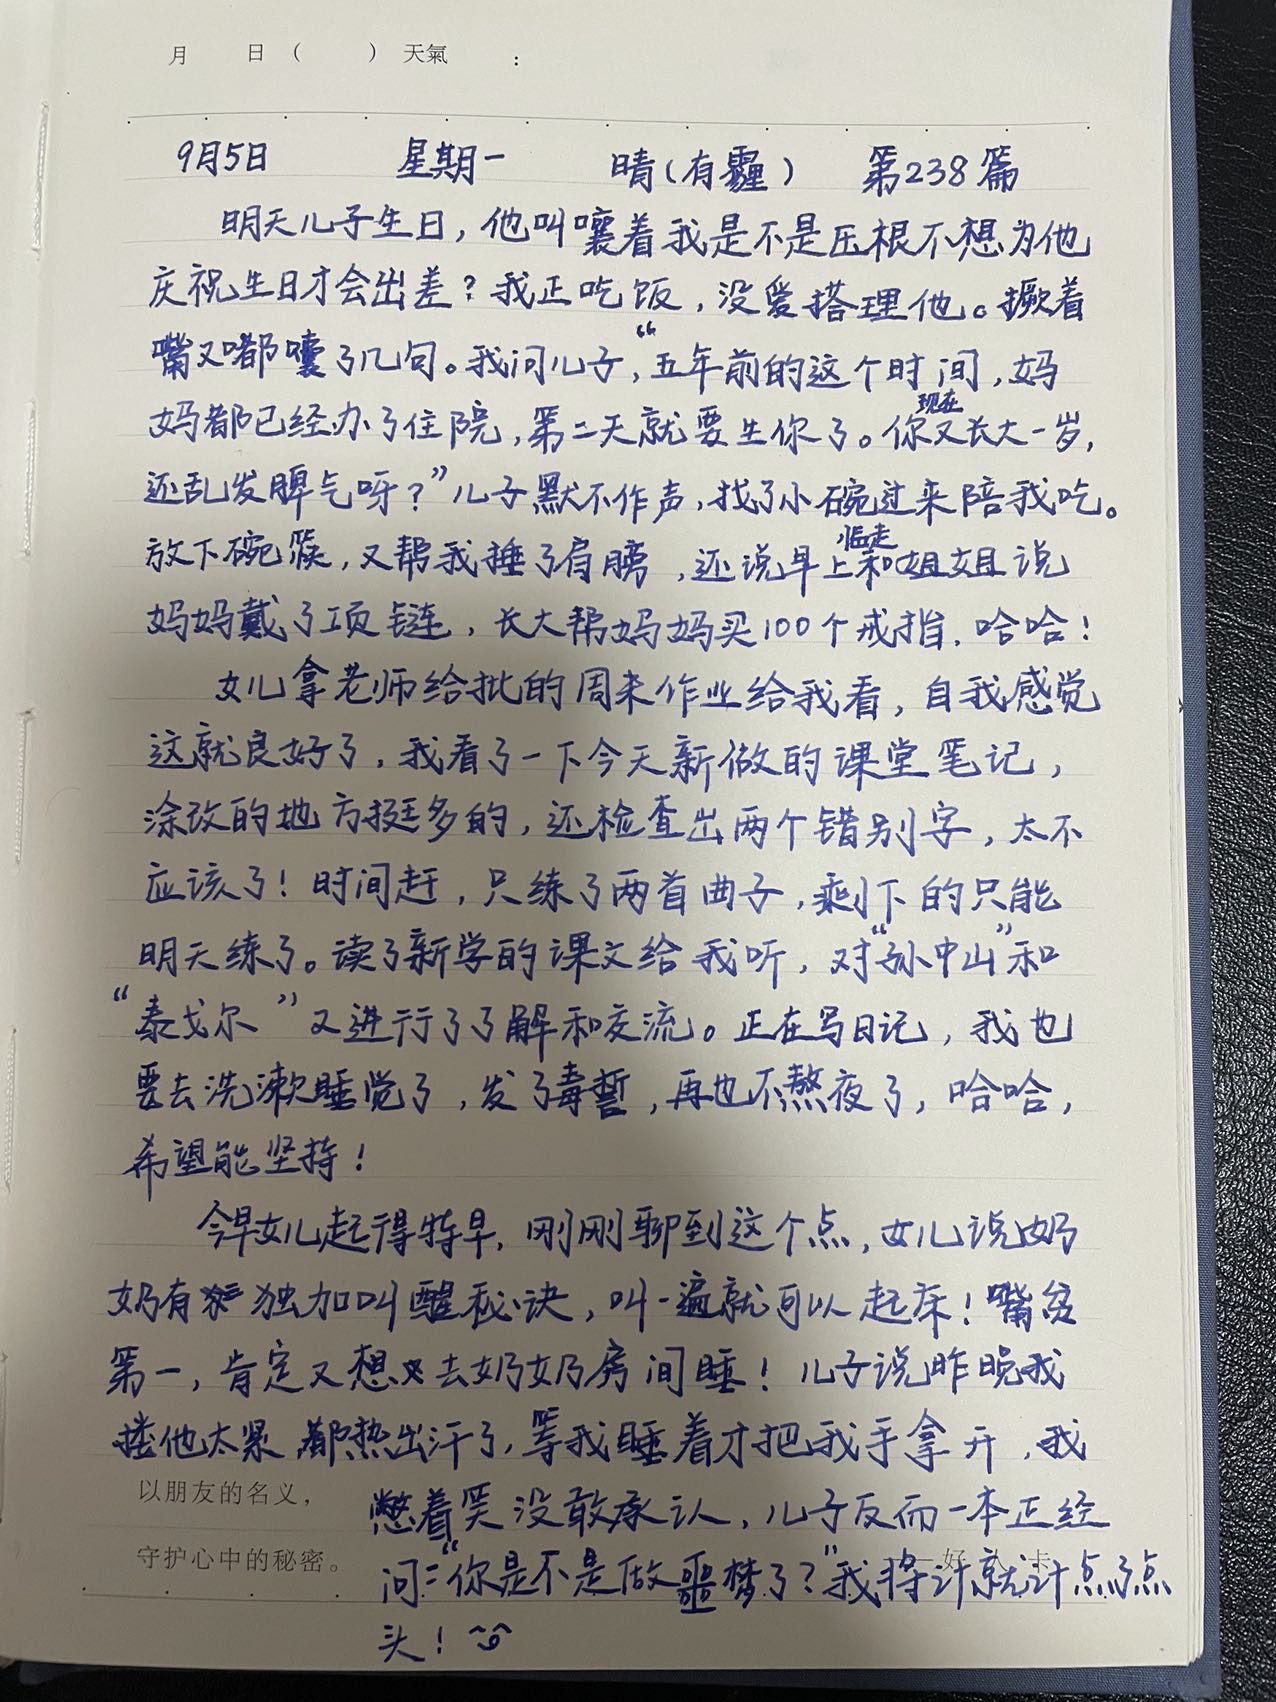 月 日（ ）天氣 ：
9月5日 星期一 晴(有霾) 第238篇
明天儿子生日，他叫嚷着我是不是压根不想为他
庆祝生日才会出差？我正吃饭，没爱搭理他。撅着
嘴又嘟囔了几句。我问儿子，“五年前的这个时间，妈
妈都已经办了住院，第二天就要生你了。你现在又长大一岁，
还乱发脾气呀？”儿子默不作声，找了小碗过来陪我吃。
放下碗筷，又帮我捶了肩膀，还说早上临走和姐姐说
妈妈戴了项链，长大帮妈妈买100个戒指，哈哈！
女儿拿老师给批的周末作业给我看，自我感觉
这就良好了，我看了一下今天新做的课堂笔记，
涂改的地方挺多的，还检查出两个错别字，太不
应该了！时间赶，只练了两首曲子，剩下的只能
明天练了。读了新学的课文给我听，对“孙中山”和
“泰戈尔”又进行了了解和交流。正在写日记，我也
要去洗漱睡觉了，发了毒誓，再也不熬夜了，哈哈，
希望能坚持！
今早女儿起得特早，刚刚聊到这个点，女儿说奶
奶有独加叫醒秘诀，叫一遍就可以起床！嘴贫
第一，肯定又想去奶奶房间睡！儿子说昨晚我
搂他太紧都热出汗了，等我睡着才把我手拿开，我
憋着笑没敢承认，儿子反而一本正经
问：“你是不是做噩梦了？”我将计就计点了点
头！
以朋友的名义，
守护心中的秘密。